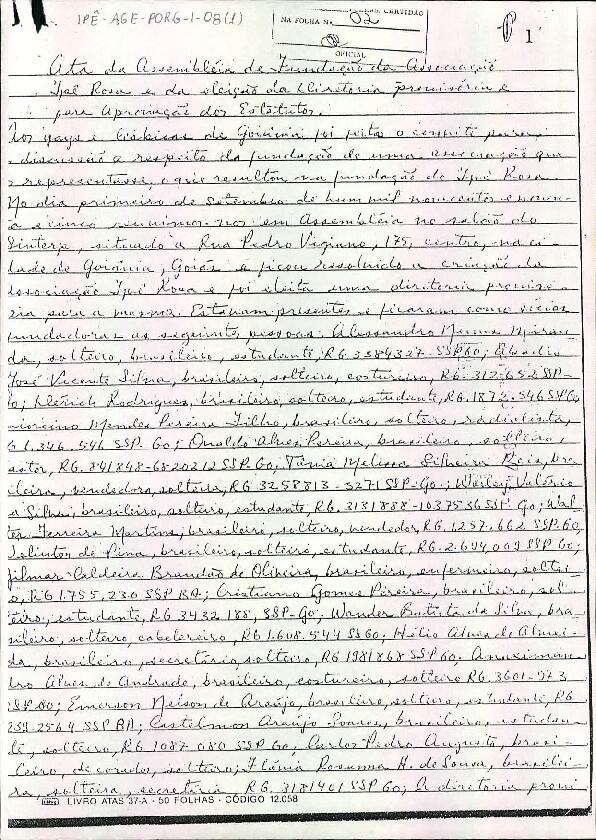 IPÊ-AGE-PORG-1-08(1)
CERTIDÃO
NA FOLHA Nº 02
OFICIAL
1
Ata da Assembléia de Fundação da Associação
Ipê Rosa e da eleição da Diretoria provisória e
para Aprovação dos Estatutos.
Aos gays e lésbicas de Goiânia foi feito o convite para
discussão a respeito da fundação de uma associação que
representasse, o que resultou na fundação do Ipê Rosa
No dia primeiro de Setembro de hum mil novecentos e noven-
ta e cinco reunimo-nos em Assembléia no salão do
Sintego, situado a Rua Pedro Vigiano, 175, centro, na ci-
dade de Goiânia, Goiás e ficou resolvido a criação da
associação Ipê Rosa e foi eleita uma diretoria provisó-
ria para a mesma. Estavam presentes e ficaram como sócios
fundadores as seguintes pessoas: Alessandro Miran-
da, solteiro, brasileiro, estudante, RG 3384327-SSP GO;
José Vicente Silva, brasileiro, solteiro, costureiro, RG. 312.652 SSP-
Go; Rodrigues, brasileiro, solteiro, estudante, RG.1872.546 SSP Go
Mendes Pereira Filho, brasileiro, solteiro, radialista,
G 1.346.546 SSP. Go; Onaldo Alves Pereira, brasileiro, solteiro,
pastor, RG. 841848-6820212 SSP. Go; Tânia Melissa Silveira Reis, bra-
sileira, vendedora, solteira, RG 3258813-3271 SSP-Go; Weiley Valério
a Silva, brasileiro, solteiro, estudante, RG. 3131888-1037536 SSP Go; Wal-
ter Ferreira Martins, brasileiro, solteiro, vendedor, RG.1257.662 SSP.GO,
Solinton de Pina, brasileiro, solteiro, estudante, RG. 2.694.009 SSP Go;
Gilmar Caldeira Brandão de Oliveira, brasileiro, enfermeiro, soltei-
o, RG 1.755.230 SSP BA; Cristiano Gomes Pereira, brasileiro, sol-
teiro, estudante, RG 3432188, SSP-Go; Wander Batista da Silva, bra-
sileiro, solteiro, cabelereiro, RG 1.608.544 SSGO; Hélio Alves de Almei-
da, brasileiro, secretário, solteiro, RG 1981868 SSP GO; Anaximan-
dro Alves de Andrade, brasileiro, costureiro, solteiro RG.3601-973
SSP.GO; Emerson Nelson de Araújo, brasileiro, solteiro, estudante, RG
2564 SSP BA; Castelmon Araújo Soares, brasileiro, estudan-
te, solteiro, RG 1087.080 SSP. Go; Carlos Pedro Augusto, brasi-
leiro, decorador, solteiro; Flávia Rosanna H. de Sousa, brasilei-
ra, solteira, secretária RG. 3181401 SSP Go; A diretoria provi
LIVRO ATAS 37-A - 50 FOLHAS - CÓDIGO 12.058